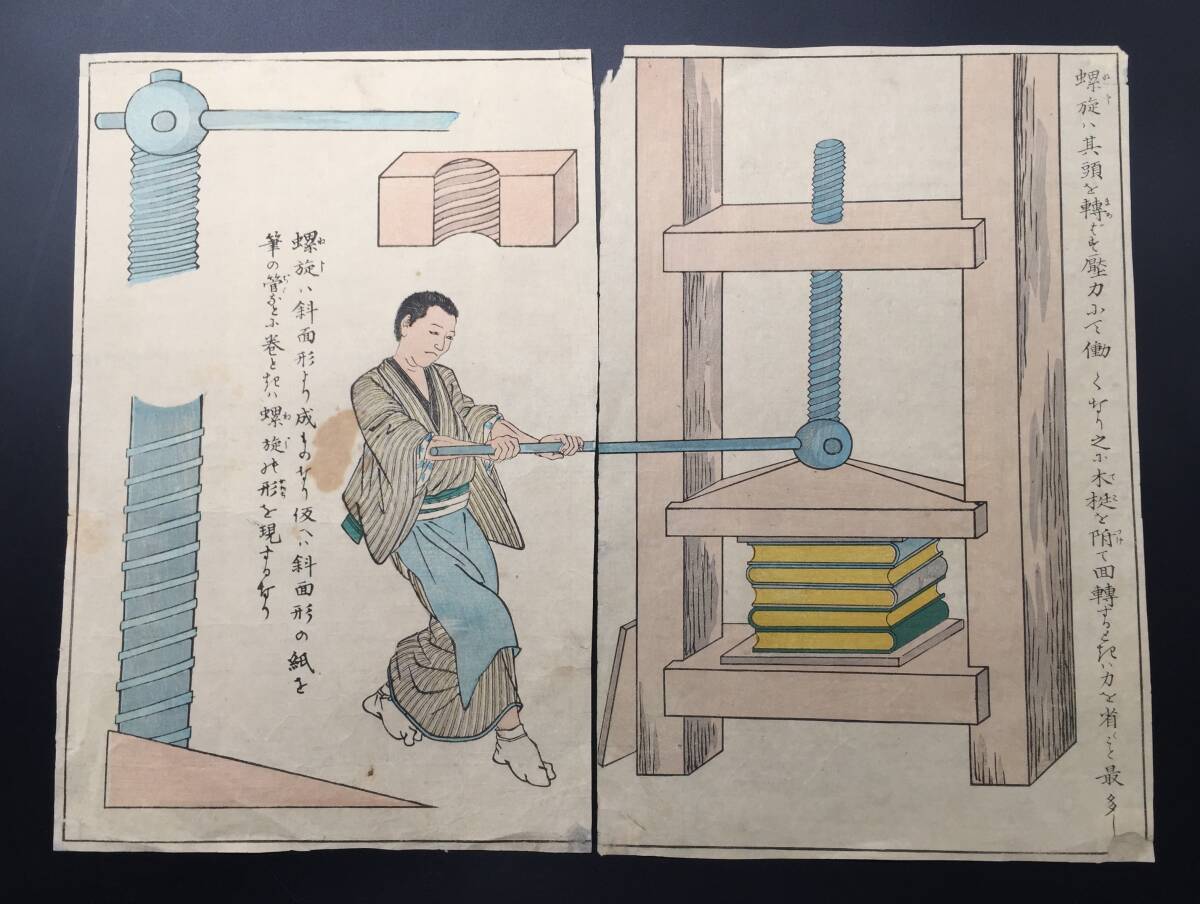 螺旋ハ其頭を轉せば壓力にて働くなり之に木梃を陷て回轉するときハ力を省くこと最多し
螺旋ハ斜面形より成ものなり仮へハ斜面形の紙を
筆の管などに巻ときハ螺旋の形を現するなり